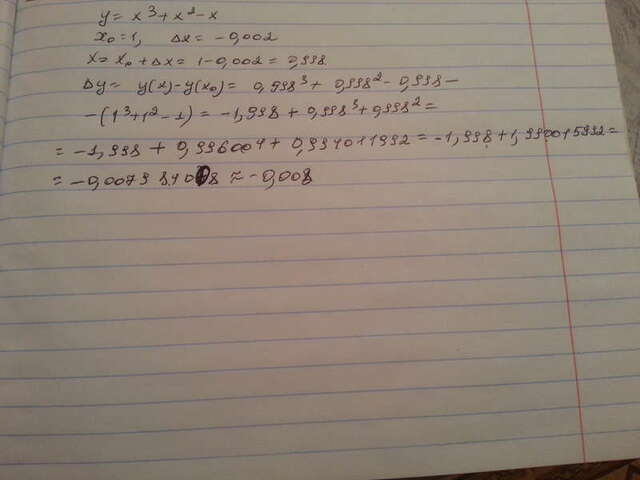 y = x³ + x² - x
x₀ = 1, Δx = -0,002
x = x₀ + Δx = 1 - 0,002 = 0,998
Δy = y(x) - y(x₀) = 0,998³ + 0,998² - 0,998 -
- (1³ + 1² - 1) = -1,998 + 0,998³ + 0,998² =
= -1,998 + 0,996004 + 0,994011992 = -1,998 + 1,990015992 =
= -0,007984008 ≈ -0,008